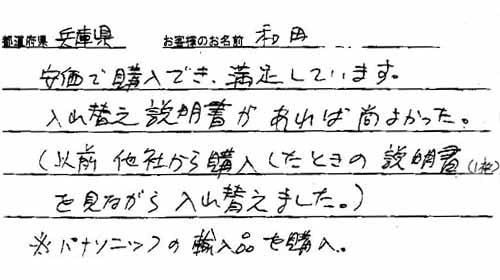 都道府県 兵庫県 お客様のお名前 和田
安価で購入でき、満足しています。
入れ替え説明書があれば尚よかった。
(以前他社から購入したときの説明書(1枚)
を見ながら入れ替えました。)
※パナソニックの輸入品を購入。